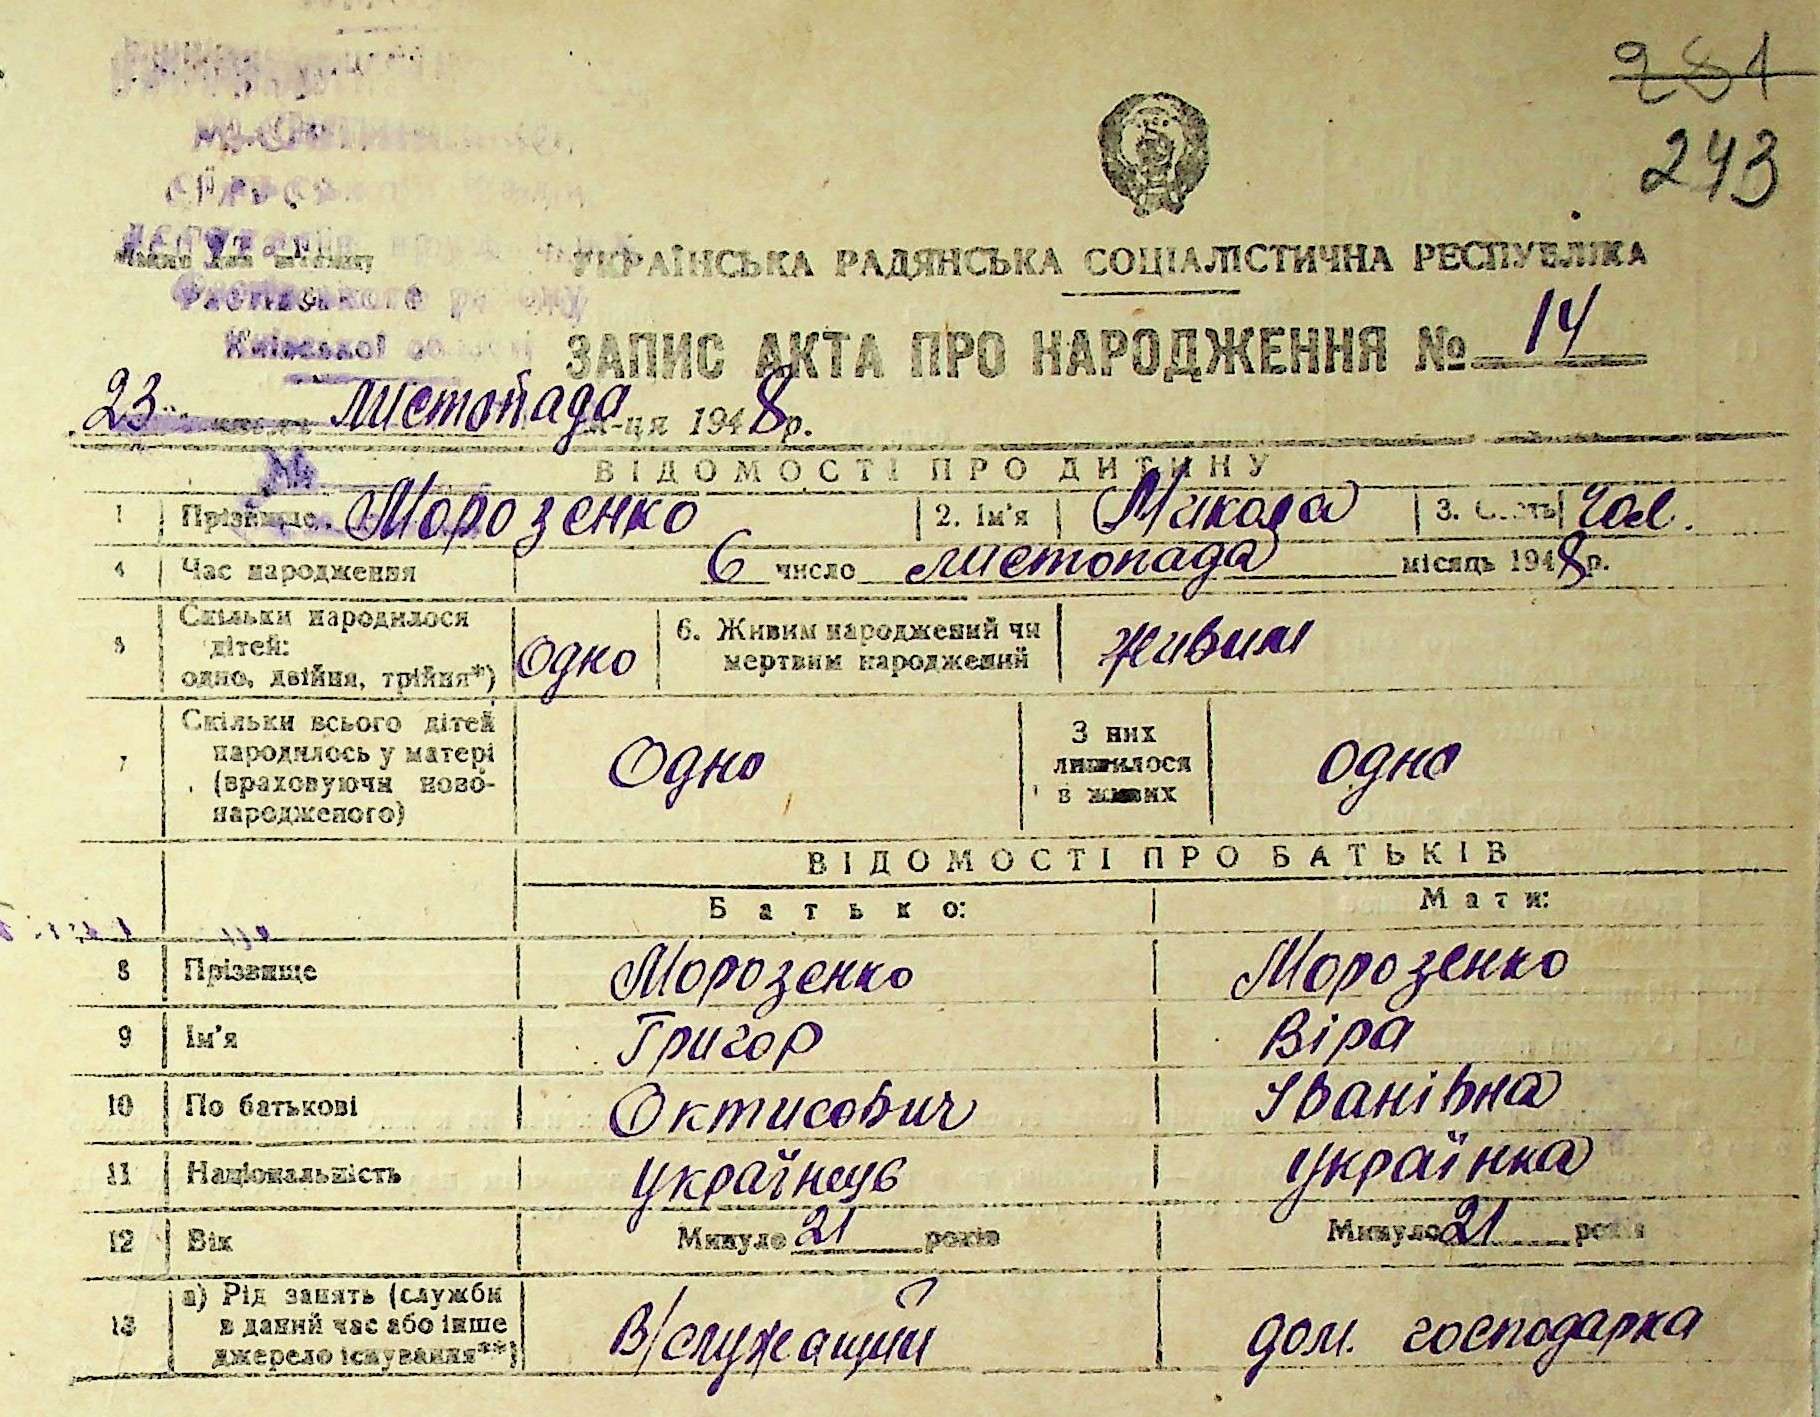 281
243
УКРАЇНСЬКА РАДЯНСЬКА СОЦІАЛІСТИЧНА РЕСПУБЛІКА
району
Київської області
ЗАПИС АКТА ПРО НАРОДЖЕННЯ № 14
23 листопада м-ця 1948 р.
ВІДОМОСТІ ПРО ДИТИНУ
1 Прізвище Морозенко 2. Ім'я Микола 3. Стать Чол.
4 Час народження 6 число листопада місяць 1948 р.
5 Скільки народилося
дітей:
одно, двійня, трійня*) Одно 6. Живим народжений чи
мертвим народжений живим
7 Скільки всього дітей
народилось у матері
(враховуючи ново-
народженого) Одно З них
лишилося
в живих одно
ВІДОМОСТІ ПРО БАТЬКІВ
Батько: Мати:
8 Прізвище Морозенко Морозенко
9 Ім'я Григор Віра
10 По батькові Октисович Іванівна
11 Національність українець українка
12 Вік Минуло 21 років Минуло 21 років
13 а) Рід занять (служби
в даний час або інше
джерело існування**) В/служащий дом. господарка